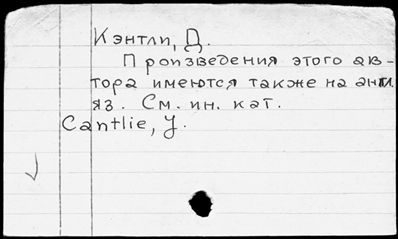 Кэнтли, Д.
Произведения этого ав-
тора имеются также на англ.
яз. См. ин. кат.
Cantlie, J.